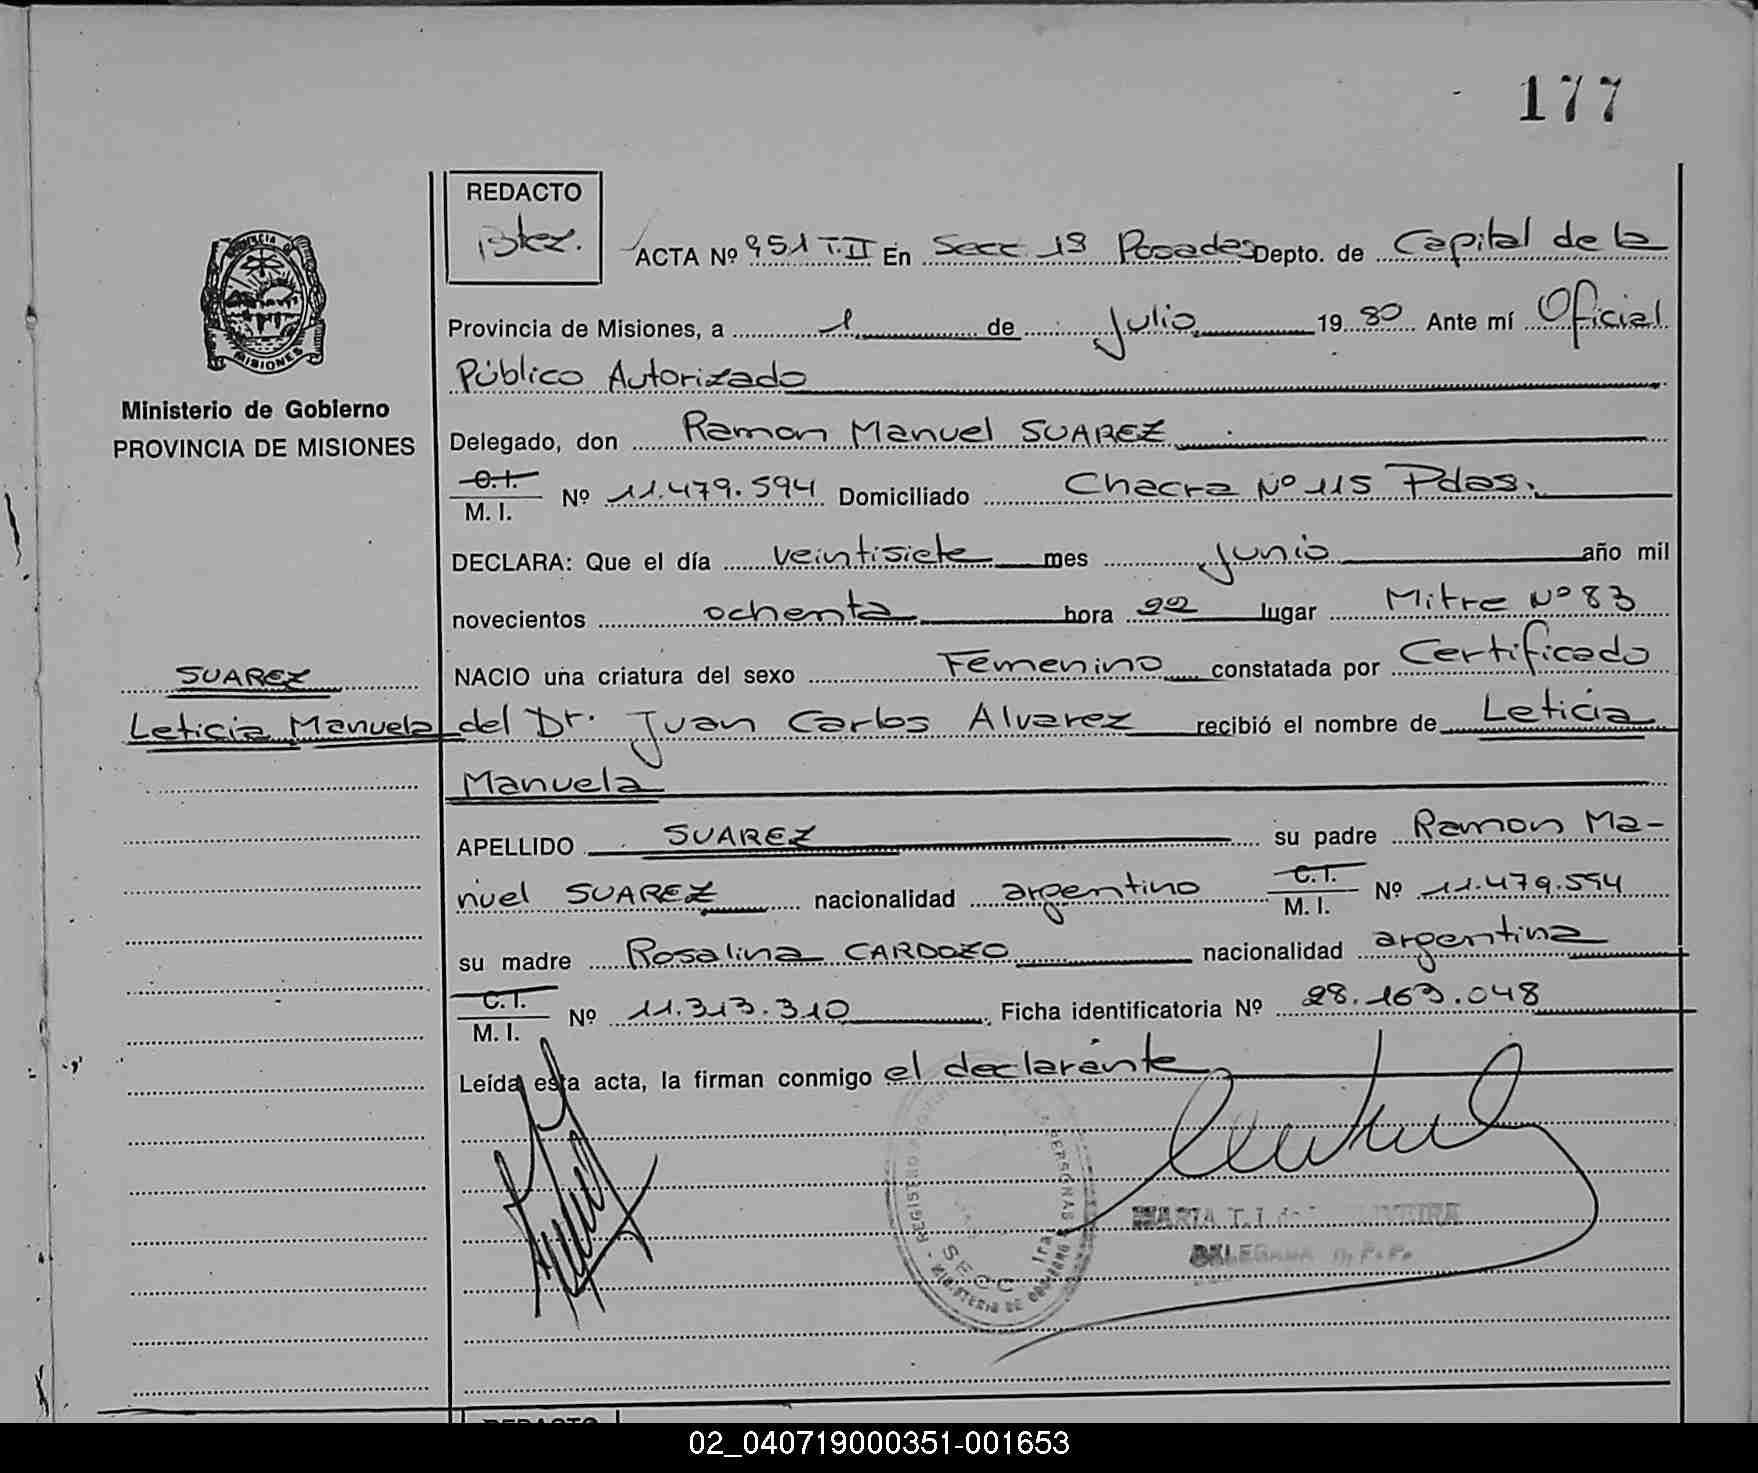 177
REDACTO
ACTA Nº 951 T.II En Secc 1ª Posadas Depto. de Capital de la
PROVINCIA DE MISIONES
Provincia de Misiones, a 1 de Julio 1980 Ante mí Oficial
Público Autorizado
Ministerio de Gobierno
PROVINCIA DE MISIONES
Delegado, don Ramon Manuel SUAREZ
C.I.
M. I. Nº 11.479.594 Domiciliado Chacra Nº 115 Pdas.
DECLARA: Que el día veintisiete mes junio año mil
novecientos ochenta hora 22 lugar Mitre Nº 83
NACIO una criatura del sexo Femenino constatada por Certificado
SUAREZ
Leticia Manuela
del Dr. Juan Carlos Alvarez recibió el nombre de Leticia
Manuela
APELLIDO SUAREZ su padre Ramon Ma-
nuel SUAREZ nacionalidad argentino C.I. M. I. Nº 11.479.594
su madre Rosalina CARDOZO nacionalidad argentina
C.I.
M. I. Nº 11.313.310 Ficha identificatoria Nº 28.163.048
Leída esta acta, la firman conmigo el declarante
REGISTRO
PERSONAS
SECC 1ra
MINISTERIO DE GOBIERNO
MARIA T.
DELEGADA
REDACTO
02_040719000351-001653